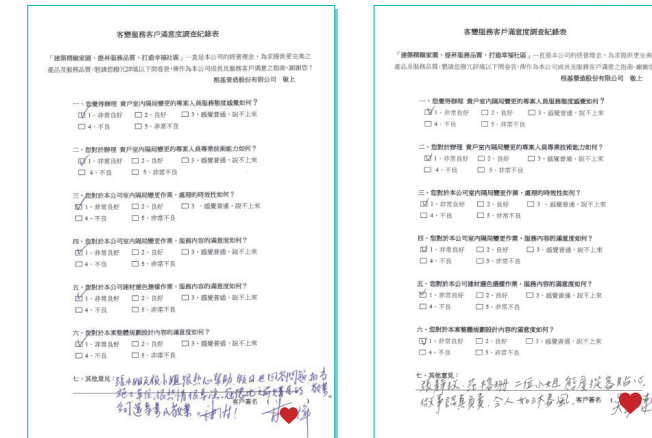 客變服務客戶滿意度調查紀錄表
「建築精緻家園，提昇服務品質，打造幸福社區」一直是本公司的經營理念，為求提供更完美之
產品及服務品質，懇請您撥冗詳填以下問卷表，俾作為本公司成長及服務客戶滿意之指南，謝謝您！
根基營造股份有限公司 敬上
一、您覺得辦理 貴戶室內隔局變更的專案人員服務態度感覺如何？
☑ 1、非常良好 □ 2、良好 □ 3、感覺普通，說不上來
□ 4、不良 □ 5、非常不良
二、您對於辦理 貴戶室內隔局變更的專案人員專業技術能力如何？
☑ 1、非常良好 □ 2、良好 □ 3、感覺普通，說不上來
□ 4、不良 □ 5、非常不良
三、您對於本公司室內隔局變更作業，處理的時效性如何？
☑ 1、非常良好 □ 2、良好 □ 3、感覺普通，說不上來
□ 4、不良 □ 5、非常不良
四、您對於本公司室內隔局變更作業，服務內容的滿意度如何？
☑ 1、非常良好 □ 2、良好 □ 3、感覺普通，說不上來
□ 4、不良 □ 5、非常不良
五、您對於本公司建材選色選樣作業，服務內容的滿意度如何？
☑ 1、非常良好 □ 2、良好 □ 3、感覺普通，說不上來
□ 4、不良 □ 5、非常不良
六、您對於本案整體規劃設計內容的滿意度如何？
☑ 1、非常良好 □ 2、良好 □ 3、感覺普通，說不上來
□ 4、不良 □ 5、非常不良
七、其他意見：
客戶簽名
客變服務客戶滿意度調查紀錄表
「建築精緻家園，提昇服務品質，打造幸福社區」一直是本公司的經營理念，為求提供更完美
產品及服務品質，懇請您撥冗詳填以下問卷表，俾作為本公司成長及服務客戶滿意之指南，謝謝您
根基營造股份有限公司 敬上
一、您覺得辦理 貴戶室內隔局變更的專案人員服務態度感覺如何？
☑ 1、非常良好 □ 2、良好 □ 3、感覺普通，說不上來
□ 4、不良 □ 5、非常不良
二、您對於辦理 貴戶室內隔局變更的專案人員專業技術能力如何？
☑ 1、非常良好 □ 2、良好 □ 3、感覺普通，說不上來
□ 4、不良 □ 5、非常不良
三、您對於本公司室內隔局變更作業，處理的時效性如何？
☑ 1、非常良好 □ 2、良好 □ 3、感覺普通，說不上來
□ 4、不良 □ 5、非常不良
四、您對於本公司室內隔局變更作業，服務內容的滿意度如何？
☑ 1、非常良好 □ 2、良好 □ 3、感覺普通，說不上來
□ 4、不良 □ 5、非常不良
五、您對於本公司建材選色選樣作業，服務內容的滿意度如何？
☑ 1、非常良好 □ 2、良好 □ 3、感覺普通，說不上來
□ 4、不良 □ 5、非常不良
六、您對於本案整體規劃設計內容的滿意度如何？
☑ 1、非常良好 □ 2、良好 □ 3、感覺普通，說不上來
□ 4、不良 □ 5、非常不良
七、其他意見：
張靜玟、二位小姐 態度從容貼心
做事認真負責，令人如沐春風。客戶簽名